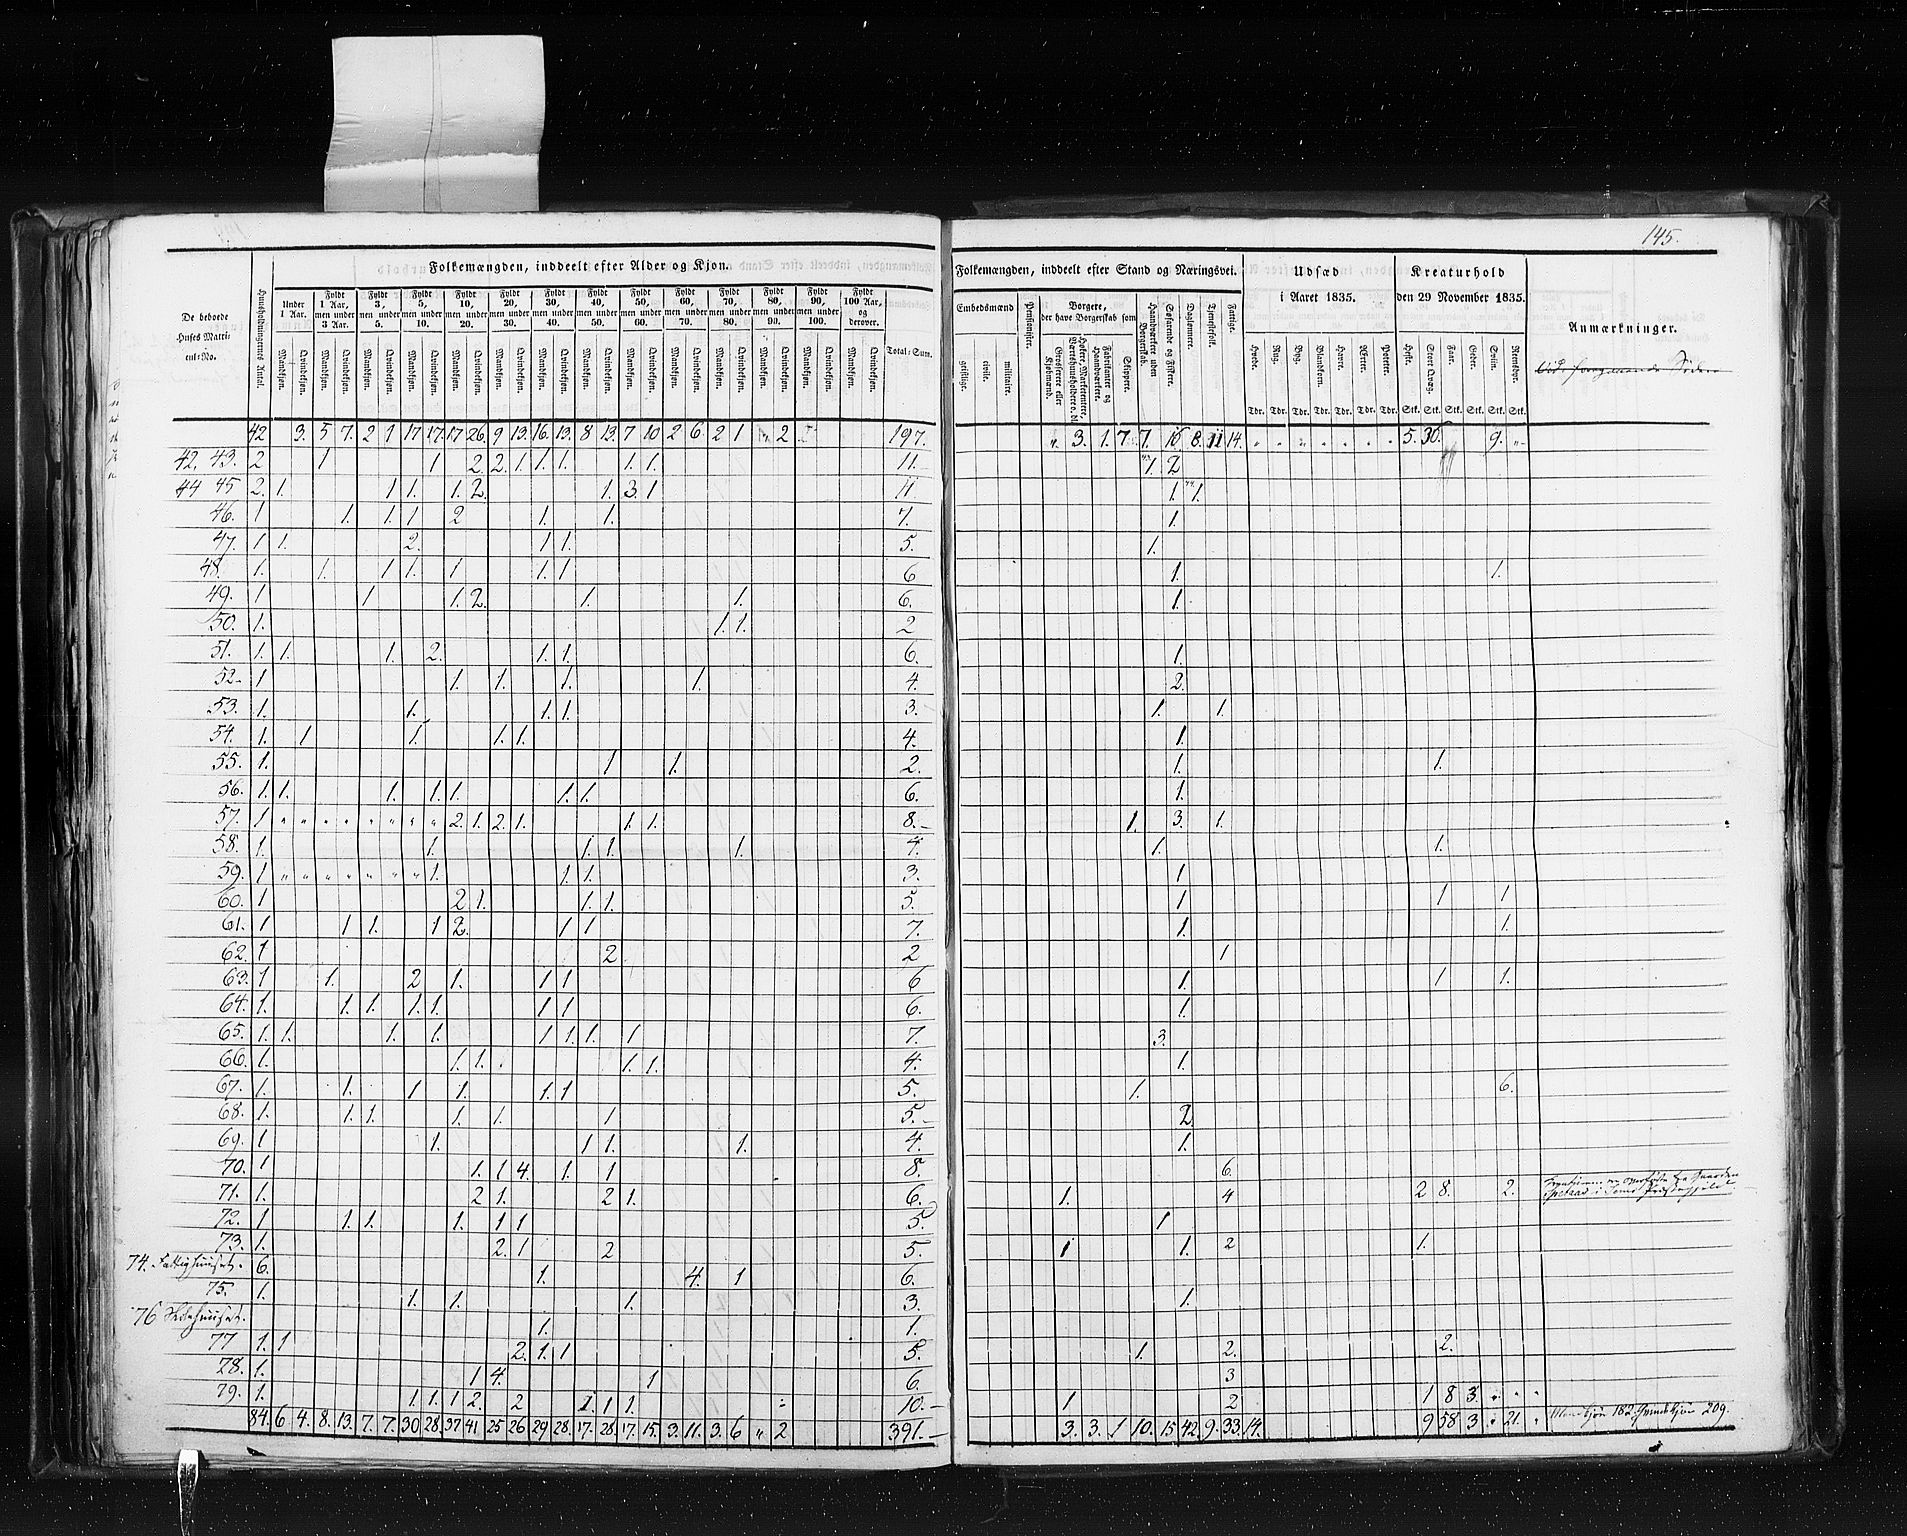 145.
Folkemængden, inddeelt efter Alder og Kjøn.
De beboede Huses Matricul-No.
Huusholdningernes Antal.
Under 1 Aar.
Fyldt 1 Aar, men under 3 Aar.
Fyldt 3, men under 5.
Fyldt 5, men under 10.
Fyldt 10, men under 20.
Fyldt 20, men under 30.
Fyldt 30, men under 40.
Fyldt 40, men under 50.
Fyldt 50, men under 60.
Fyldt 60, men under 70.
Fyldt 70, men under 80.
Fyldt 80, men under 90.
Fyldt 90, men under 100.
Fyldt 100 Aar, og derover.
Mandkjøn. Qvindekjøn.
Total-Sum.
Folkemængden, inddeelt efter Stand og Næringsvei.
Embedsmænd
geistlige. civile. militaire.
Pensionister.
Borgere, der have Borgerskab som
Grosserere eller Kjøbmænd.
Høkere, Marketentere, Værtshuusholdere o. dl.
Fabrikanter og Haandværkere.
Skippere.
Haandværkere uden Borgerskab.
Søfarende og Fiskere.
Daglønnere.
Tjenestefolk.
Fattige.
Udsæd i Aaret 1835.
Hvede. Rug. Byg. Blandkorn. Havre. Ærter. Poteter.
Tdr. Tdr. Tdr. Tdr. Tdr. Tdr. Tdr.
Kreaturhold den 29 November 1835.
Heste. Stort Qvæg. Faar. Geder. Sviin. Rensdyr.
Stk. Stk. Stk. Stk. Stk. Stk.
Anmærkninger.
42 3. 5 7. 2 1 17 17. 17 26. 9 13. 16. 13. 8 13. 7 10 2 6. 2 1 „ 2 197. „ 3. 1. 7. 7. 16 8. 11 14. „ „ „ „ „ „ „ 5. 36. 9. „
42, 43. 2 1 1 2 2. 1. 1. 1. 1. 1. 11. 1. 2
44 45 2. 1. 1 1. 1. 2. 1. 3. 1 11 1. 1.
46. 1 1. 1. 1 2 1. 1. 7. 1.
47. 1 1. 2. 1 1. 5. 1.
48. 1. 1. 1 1. 1 1. 1 6 1. 1.
49. 1 1 1. 2. 1. 1. 6. 1.
50. 1. 1. 1. 2
51. 1. 1. 1. 2. 1. 1. 6. 1.
52 1 1. 1. 1. 1. 4. 2.
53. 1. 1. 1. 1. 3. 1. 1.
54. 1. 1 1. 1. 1. 4. 1.
55. 1. 1 1. 2. 1. 1.
56. 1. 1. 1. 1. 1. 1. 1. 6. 1.
57. 1 „ „ „ „ „ „ „ „ 2. 1. 2. 1. 1. 1. 8. 1. 3. 1.
58. 1. 1. 1. 1. 1. 4. 1. 1.
59. 1 „ „ „ „ „ „ „ 1. 1. 1. 3. 1
60. 1 2 1. 1. 1. 5. 1 1 1
61. 1 1 1. 1 2. 1 1 7. 1. 1.
62. 1 2 2 1
63. 1 1. 2 1. 1 1 6 1. 1 1.
64. 1. 1. 1. 1. 1. 1 1 6. 1.
65. 1. 1. 1. 1. 1 1. 1. 1 7. 3.
66. 1. 1. 1. 1. 1. 4. 1.
67. 1. 1. 1 1. 1. 1 5. 1. 6.
68. 1. 1. 1. 1. 1. 1 5. 2.
69. 1 1. 1 1. 1. 4. 1.
70. 1 1. 1 4. 1. 1 8. 6.
71. 1. 2 1. 2 1. 6. 1. 4 2 8. 2.
72. 1 1. 1. 1. 1 1 5. 1
73. 1. 2. 1 2 5. 1 1. 2 1.
74. Fattighuuset. 6. 1. 4. 1 6.
75. 1. 1. 1. 1. 3. 1.
76 1. 1.
77 1. 1 2. 1. 1 5. 1. 2. 2.
78. 1. 1 4. 1 6. 3
79. 1. 1. 1. 1 2. 2 1. 1 1. 10. 1 2 1 8 3. „ „ „
84. 6 4. 8. 13. 7. 7. 30 28. 37 41 25 26 29 28. 17. 28. 17. 15. 3. 11. 3. 6 „ 2 391. 3. 3. 1 10. 15 42. 9. 33. 14. 9 58 3 „ 21. „ Mandkjøn 182. Qvindekjøn 209.